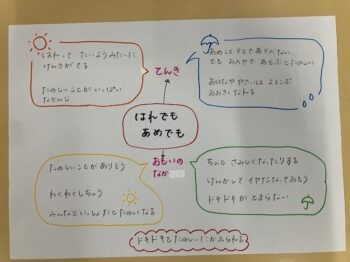 はれって たいようみたいに
げんきがでる
たのしいことがいっぱい
なかんじ
てんき
あめは そとであそべない…
でも おへやで あそぶとたのしい
おはなややさいは よろこぶ
おおきくなれる
はれでも
あめでも
おもいの
なか
たのしいことがありそう
わくわくしちゃう
みんなといっしょだとたのしくなる
ちょっと さみしくなったりする
けんかして イヤだなっておもう
ドキドキがとまらない
ドキドキもたのしいにかえられる